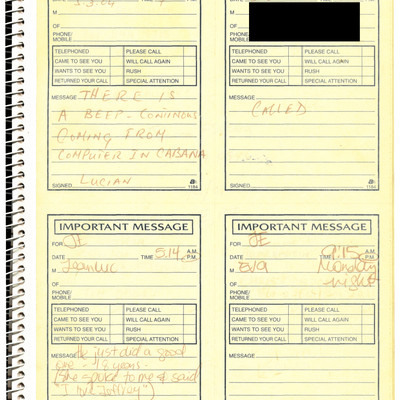 5-3-04
M
OF
PHONE/
MOBILE
TELEPHONED PLEASE CALL
CAME TO SEE YOU WILL CALL AGAIN
WANTS TO SEE YOU RUSH
RETURNED YOUR CALL SPECIAL ATTENTION
MESSAGE THERE IS
A BEEP - CONTINOUS
COMING FROM
COMPUTER IN CABANA
LUCIAN
SIGNED 1184
M
OF
PHONE/
MOBILE
TELEPHONED PLEASE CALL
CAME TO SEE YOU WILL CALL AGAIN
WANTS TO SEE YOU RUSH
RETURNED YOUR CALL SPECIAL ATTENTION
MESSAGE
CALLED
SIGNED 1184
IMPORTANT MESSAGE
FOR JE
DATE TIME 5:14 A.M. P.M.
M Jeanluc
OF
PHONE/
MOBILE
TELEPHONED PLEASE CALL
CAME TO SEE YOU WILL CALL AGAIN
WANTS TO SEE YOU RUSH
RETURNED YOUR CALL SPECIAL ATTENTION
MESSAGE He just did a good
one - 18 years -
(She spoke to me & said
"I love Jeffrey")
IMPORTANT MESSAGE
FOR JE
DATE TIME 9:15 A.M. P.M.
M 8/9 Monday
OF night
PHONE/
MOBILE
TELEPHONED PLEASE CALL
CAME TO SEE YOU WILL CALL AGAIN
WANTS TO SEE YOU RUSH
RETURNED YOUR CALL SPECIAL ATTENTION
MESSAGE